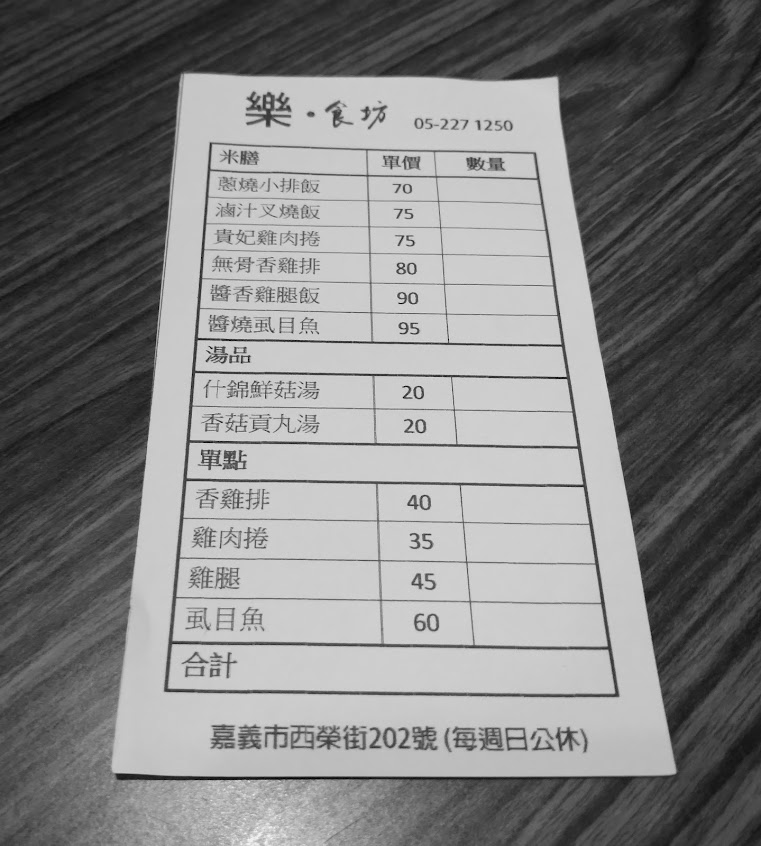 樂・食坊 05-227 1250
米膳 單價 數量
蔥燒小排飯 70
滷汁叉燒飯 75
貴妃雞肉捲 75
無骨香雞排 80
醬香雞腿飯 90
醬燒虱目魚 95
湯品
什錦鮮菇湯 20
香菇貢丸湯 20
單點
香雞排 40
雞肉捲 35
雞腿 45
虱目魚 60
合計
嘉義市西榮街202號 (每週日公休)